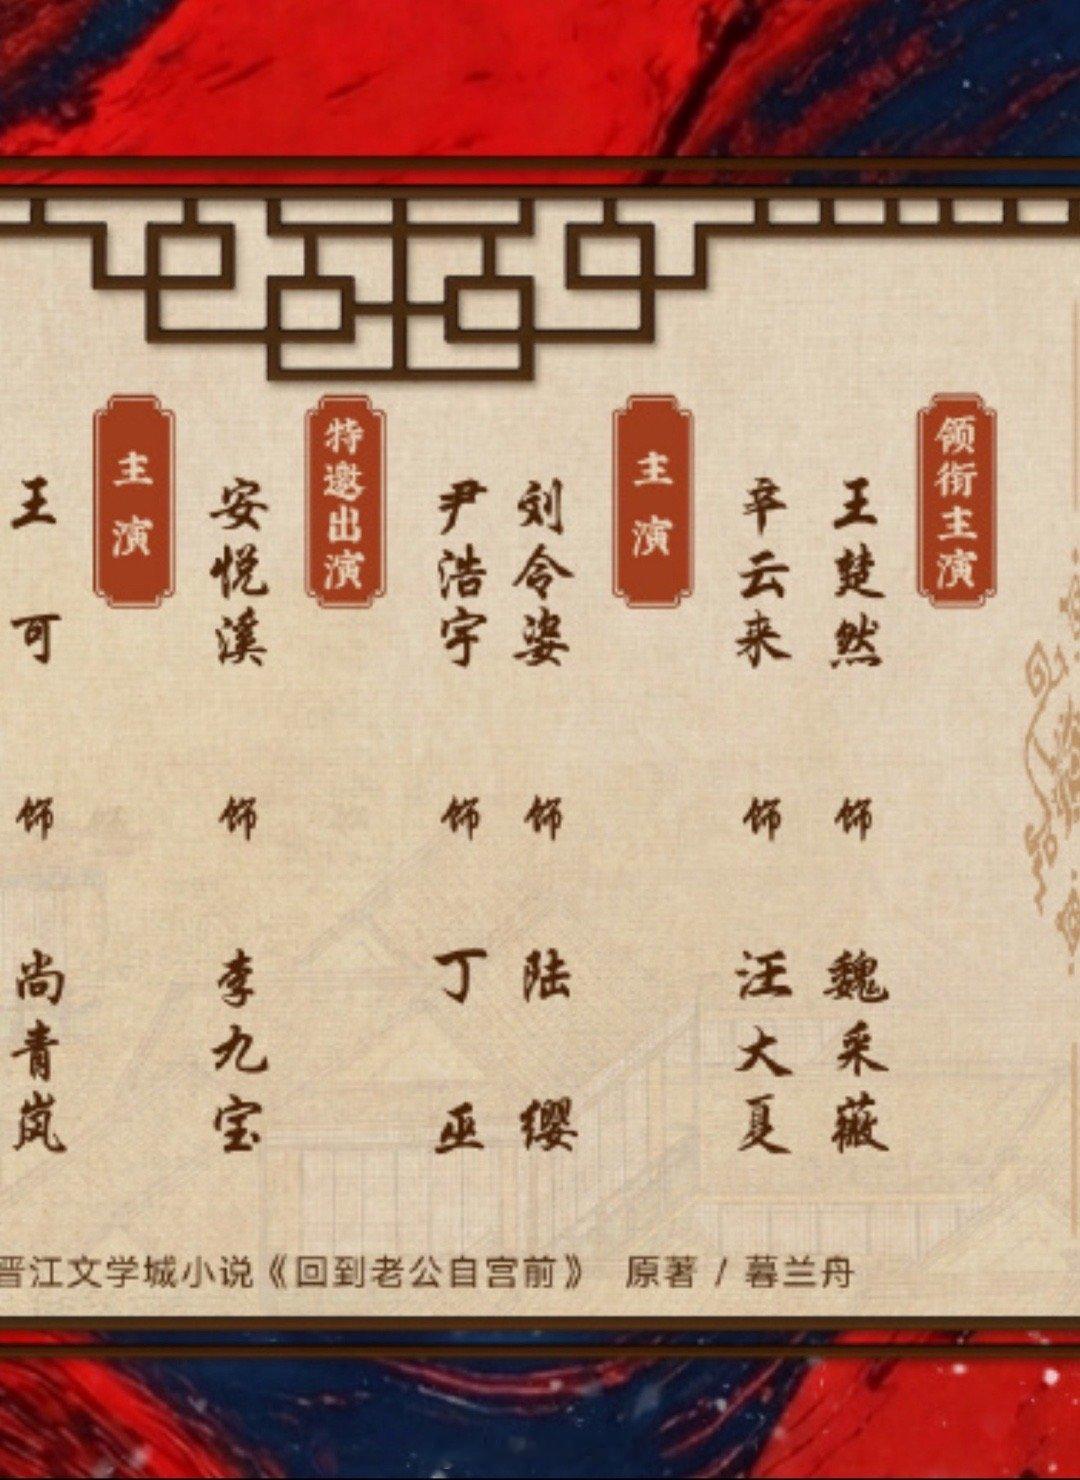 领衔主演
王楚然 饰 魏采薇
辛云来 饰 汪大夏
主演
刘令姿 饰 陆缨
尹浩宇 饰 丁巫
特邀出演
安悦溪 饰 李九宝
主演
王可 饰 尚青岚
晋江文学城小说《回到老公自宫前》 原著 / 暮兰舟